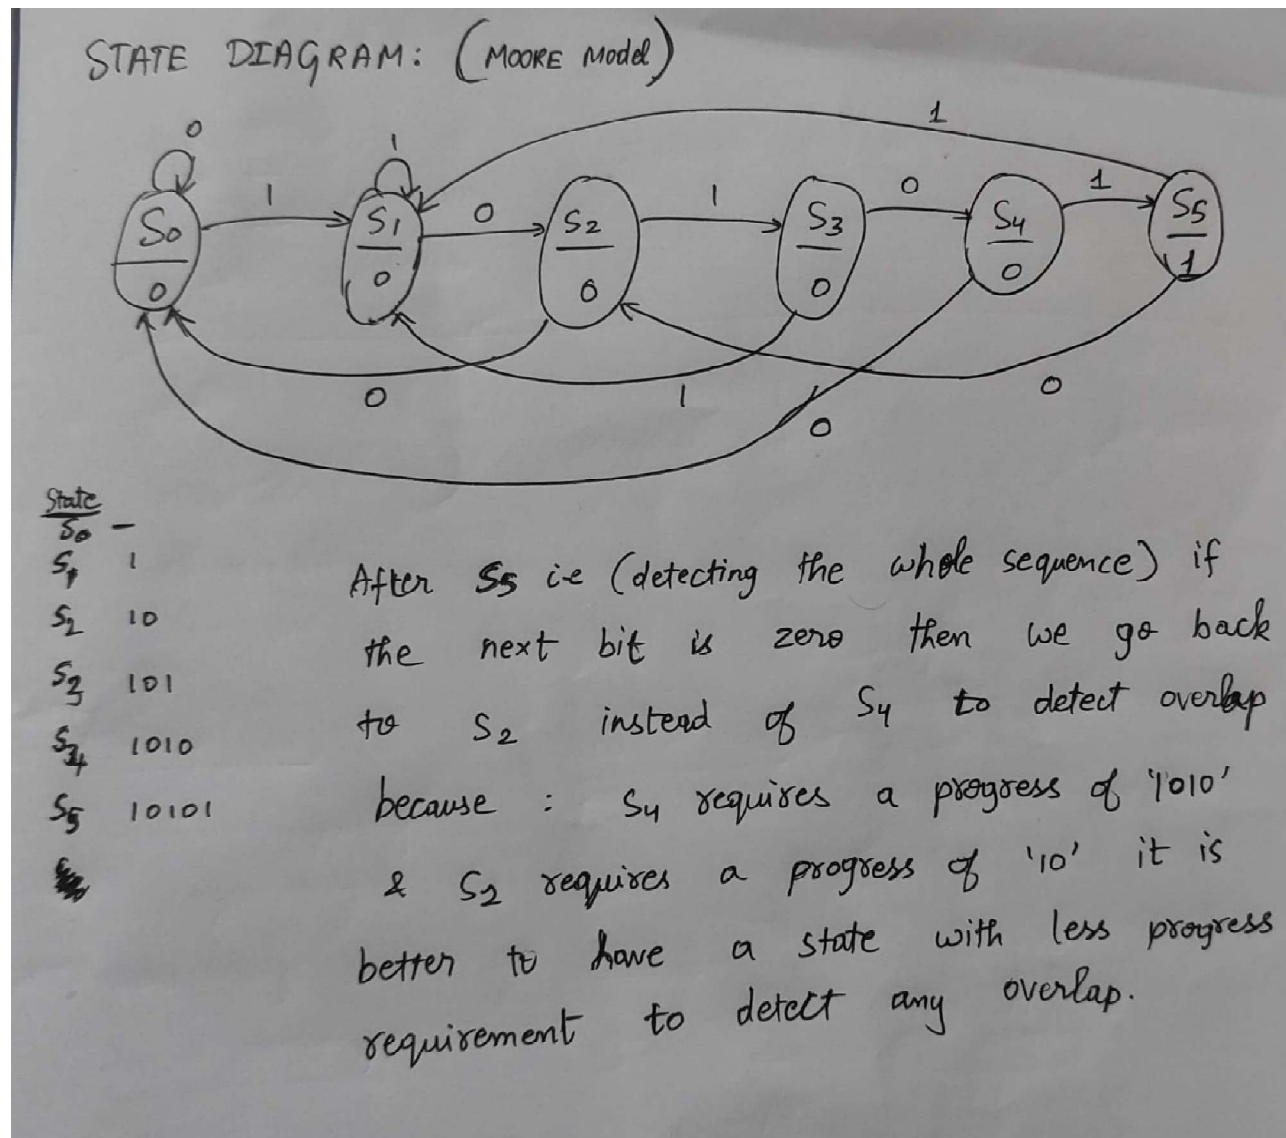 STATE DIAGRAM: (MOORE Model)
0
1
1
0
1
0
1
1
S0
0
S1
0
S2
0
S3
0
S4
0
S5
1
0
1
0
0
State
S0 -
S1 1
S2 10
S3 101
S4 1010
S5 10101
After S5 i.e (detecting the whole sequence) if
the next bit is zero then we go back
to S2 instead of S4 to detect overlap
because : S4 requires a progress of '1010'
& S2 requires a progress of '10' it is
better to have a state with less progress
requirement to detect any overlap.